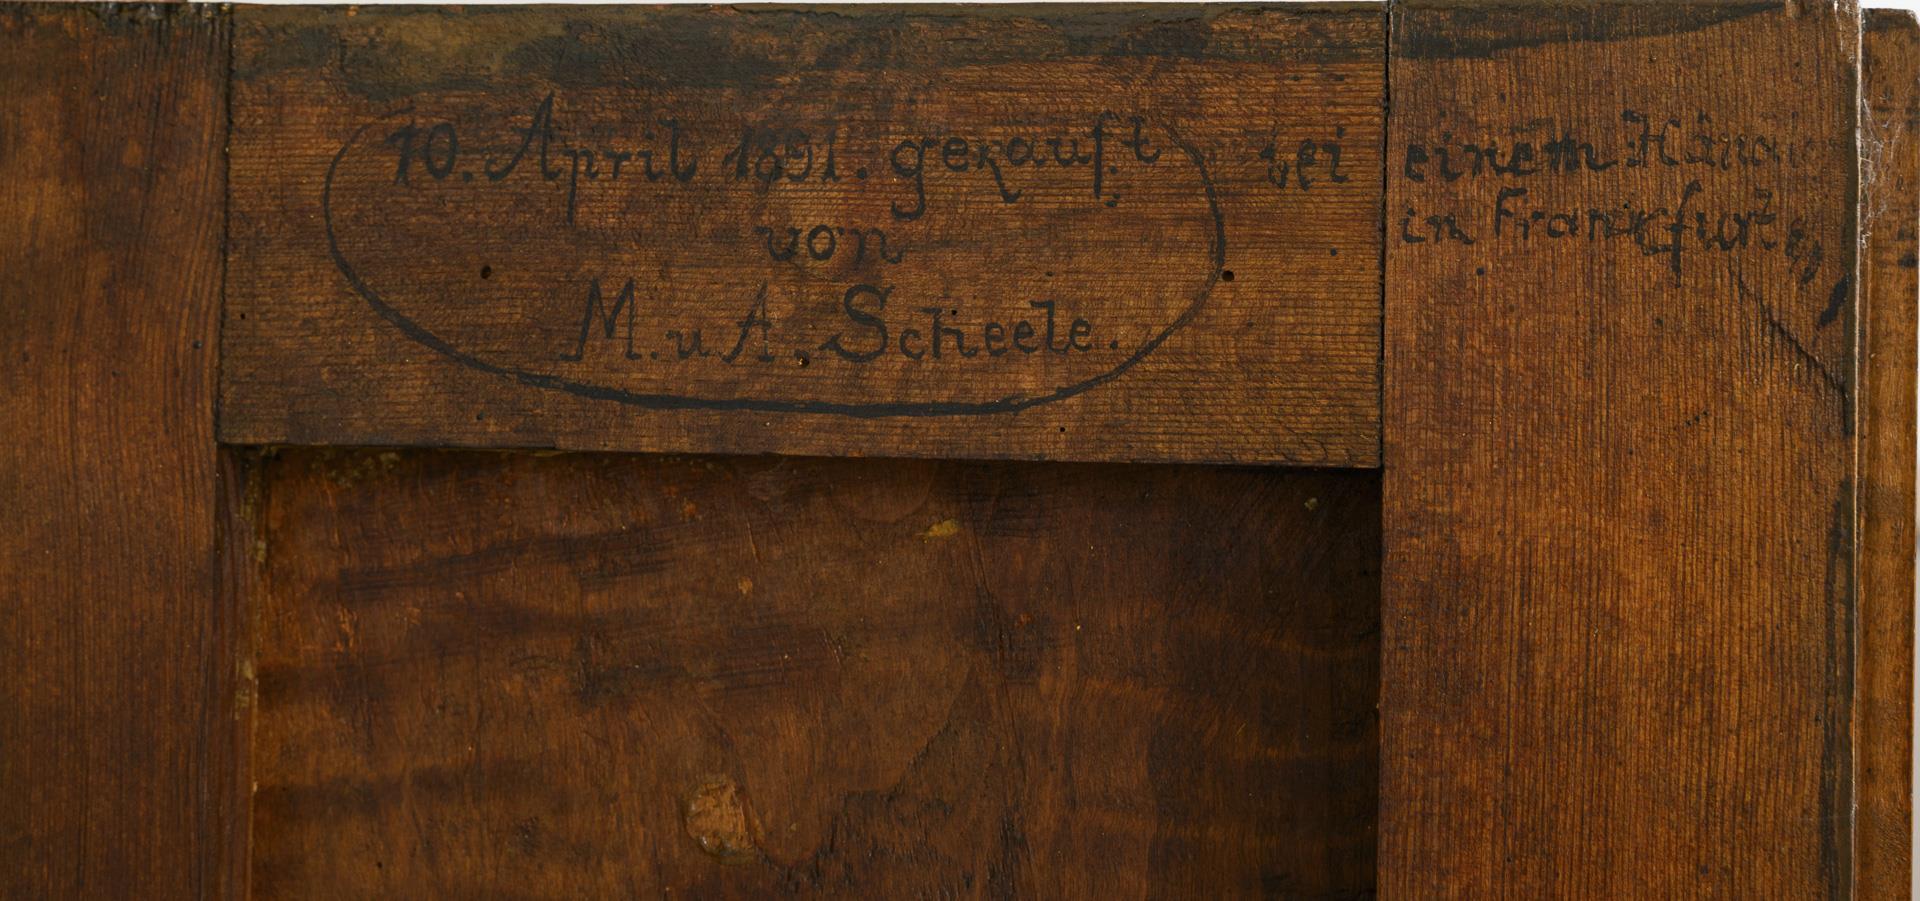 10. April 1891. gekauft bei einem Händler
von
M. u A. Scheele.
in Frankfurt